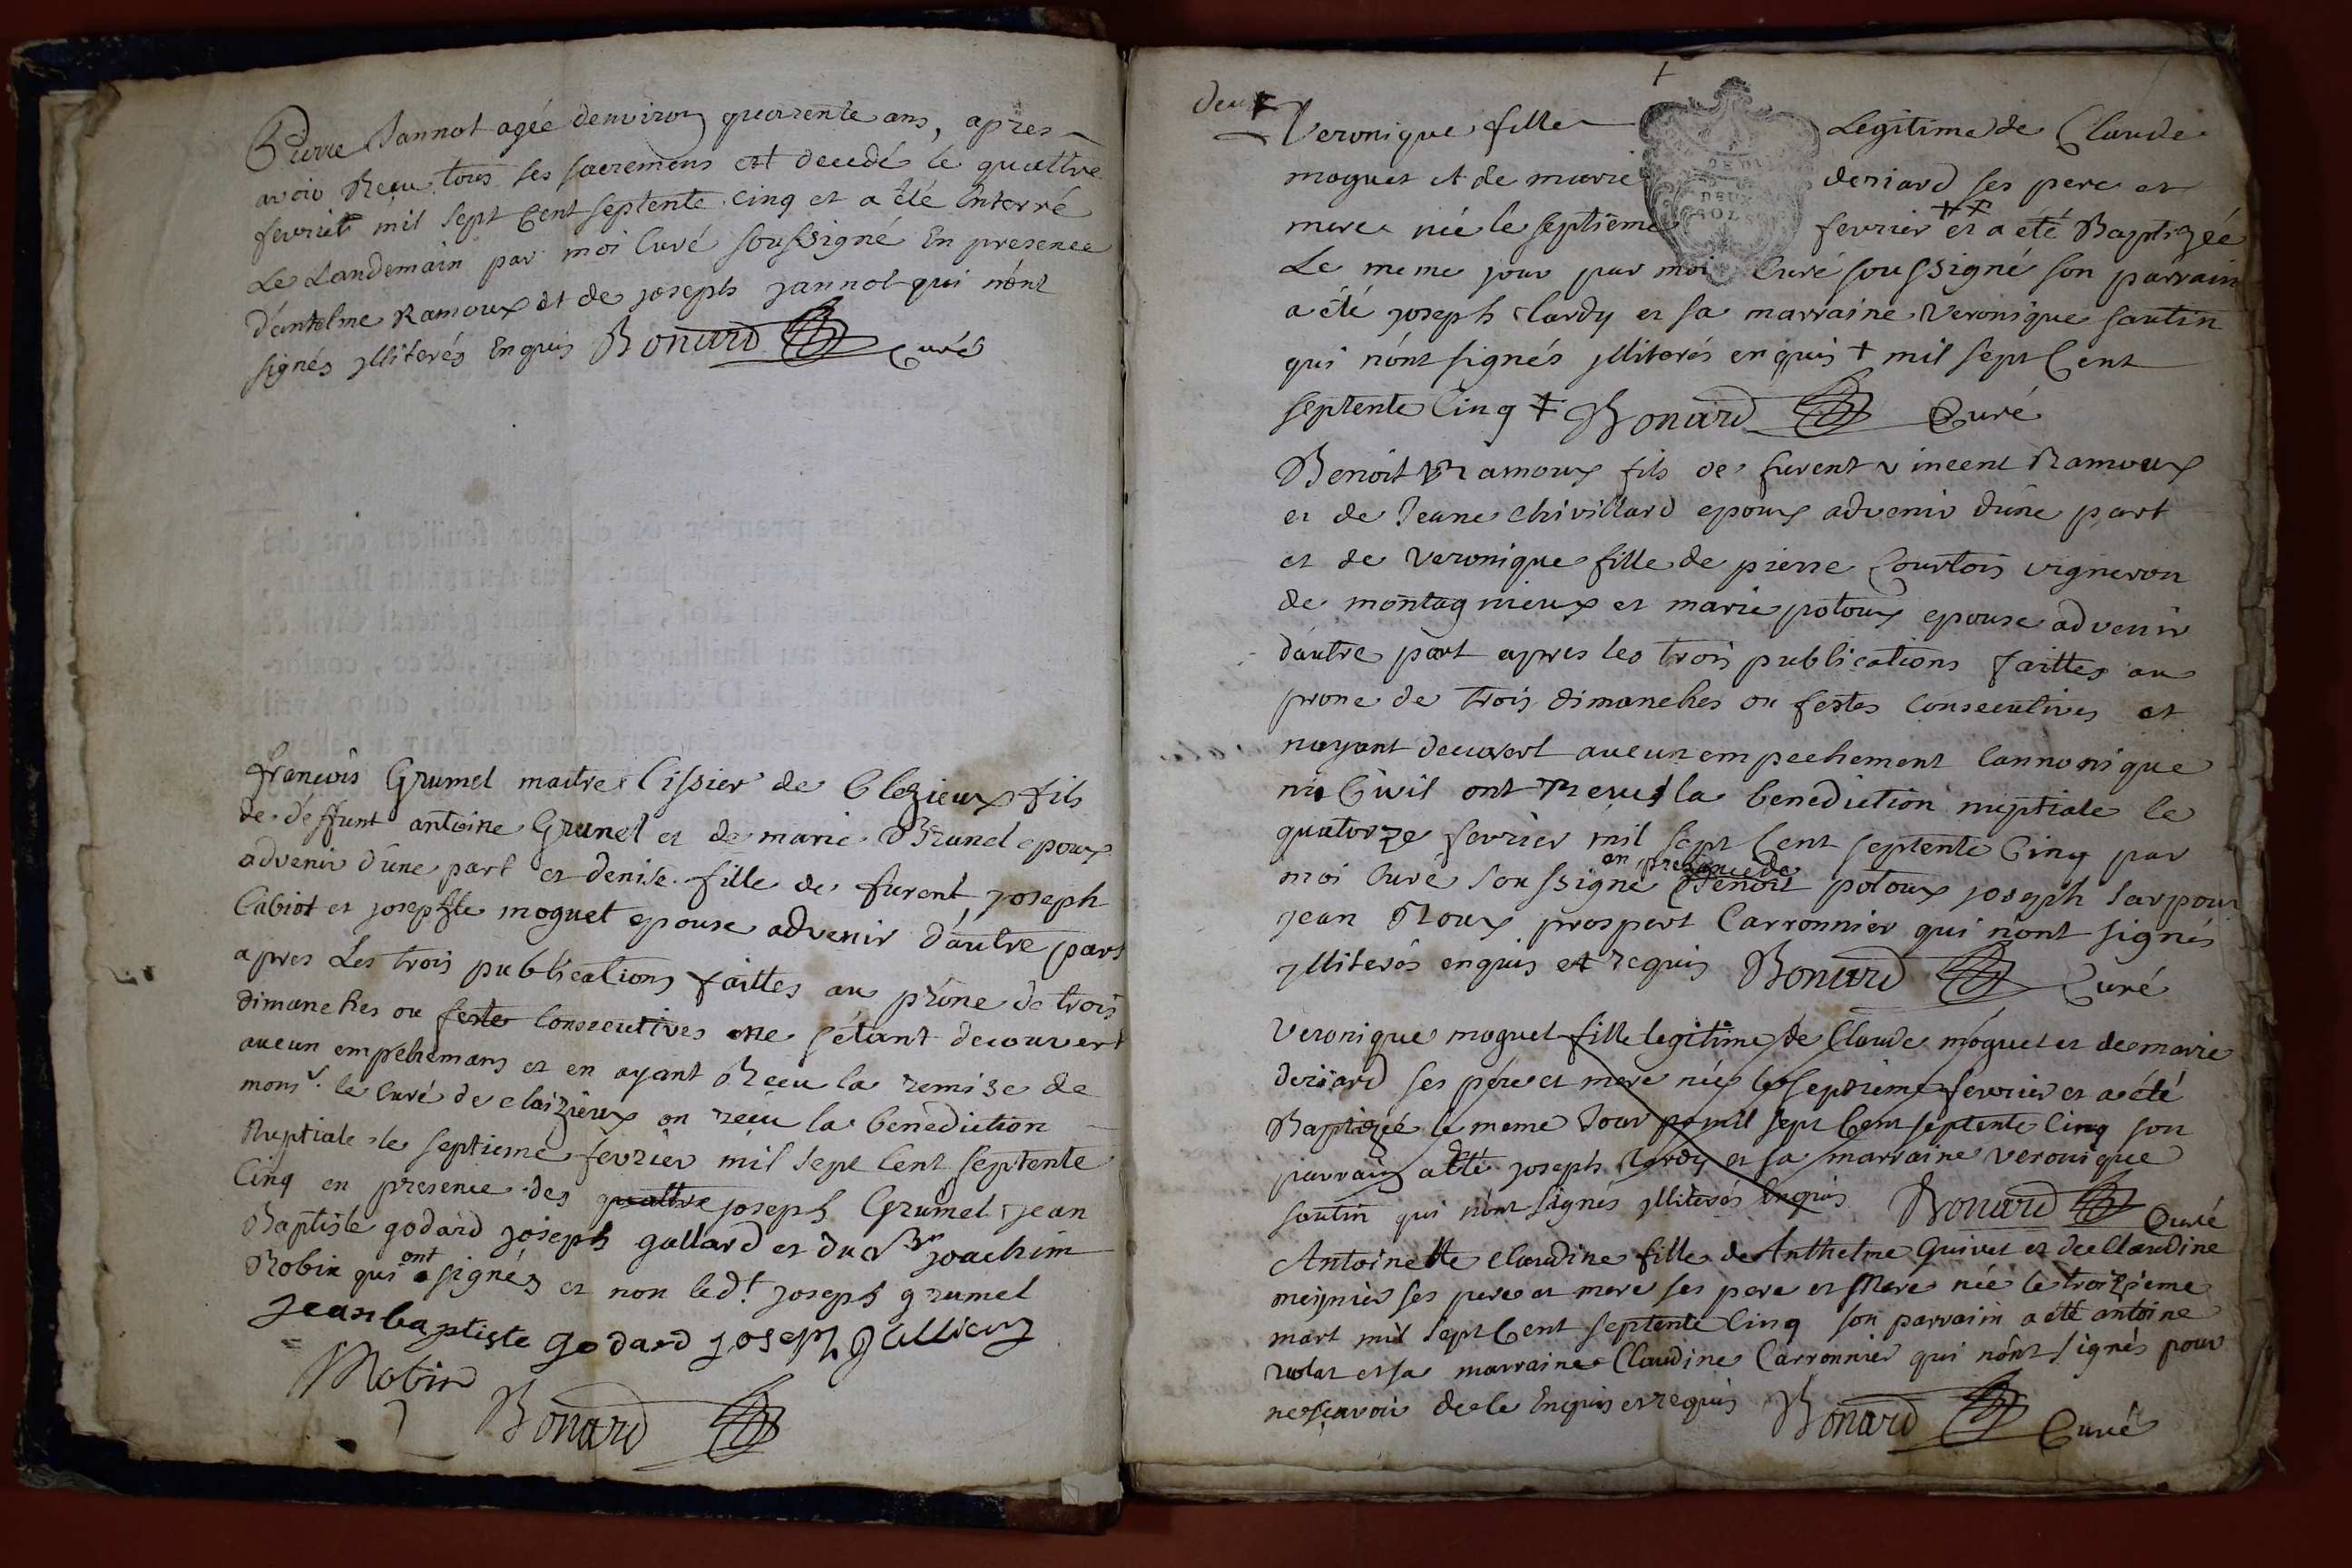 Pierre Jannot agée denviron quarente ans, apres
avoir Reçu tous ses sacremens est decedé le quattre
fevrier mil sept Cent septente cinq et a été Enterré
Le Landemain par moi Curé soussigné En presence
d'antelme Ramoux et de joseph jannot qui n'ont
signés jlliterés Enquis Bonard Curé
françois Grumel maitre lissier de Clezieux fils
de deffunt antoine Grumel et de marie Brunel epoux
advenir d'une part et denise fille de furent joseph
Cabiot et josephte moguet epouse advenir d'autre part
apres Les trois publications faittes au prône de trois
dimanches ou feste consecutives ne s'etant decouvert
aucun empechemans et en ayant Reçu la remise de
monsr. le Curé de claizieux on reçu la benediction
Nuptiale le septieme fevrier mil sept Cent septente
Cinq en presence des quattre joseph Grumel jean
Baptiste godard joseph gallard et du Sr joachim
Robin qui ont signés et non led.t joseph grumel
jean baptiste godard joseph
Robin
Bonard
deux
Veronique fille Legitime de Claude
moguet et de marie deriard ses pere et
mere née le septieme fevrier ++ et a été Baptizée
Le meme jour par moi Curé soussigné son parrain
a été joseph clardy et sa marraine Veronique sautin
qui n'ont signés jlliterés enquis + mil sept Cent
septente Cinq + Bonard Curé
DEUX
SOLS
Benoit Ramoux fils de furent vincent Ramoux
et de Jeane chivillard epoux advenir d'une part
et de Veronique fille de pierre Courtois vigneron
de montagnieux et marie potoux epouse advenir
d'autre part apres les trois publications faittes au
prone de trois dimanches ou festes consecutives et
nayant decuvert aucun empechement Cannonique
ni Civil ont Reçus la benediction nuptiale le
quatorze fevrier mil sept Cent septente Cinq par
moi Curé soussigné en presence de Benoit potoux joseph
jean Roux prospert Carronnier qui n'ont signés
jlliterés enquis et requis Bonard Curé
Veronique moguet fille legitime de Claude moguet et de marie
deriard ses pére et mere née le septieme fevrier et a été
Baptizée le meme Jour mil sept Cent septente Cinq son
parrain a été joseph clardy et sa marraine veronique
sautin qui n'ont signés jlliterés Enquis Bonard Curé
Antoinette claudine fille de Anthelme Guivet et de Claudine
meignier ses pere et mere ses pere et Mere née le troizieme
mart mil sept Cent septente Cinq son parrain a été antoine
et sa marraine Claudine Carronnier qui n'ont signés pour
ne sçavoir de le Enquis et requis Bonard Curé